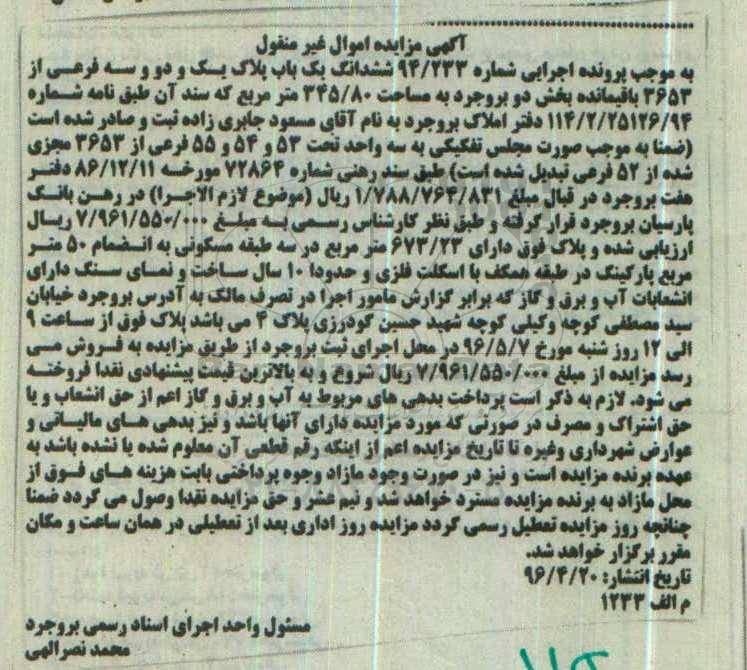 آگهی مزایده اموال غیر منقول
به موجب پرونده اجرایی شماره ۹۴/۲۳۳ ششدانگ یک باب پلاک یک و دو و سه فرعی از
۳۶۵۳ باقیمانده بخش دو بروجرد به مساحت ۳۴۵/۸۰ متر مربع که سند آن طبق نامه شماره
۱۱۴/۲/۲۵۱۲۶/۹۴ دفتر املاک بروجرد به نام آقای مسعود جابری زاده ثبت و صادر شده است
(ضمنا به موجب صورت مجلس تفکیکی به سه واحد تحت ۵۳ و ۵۴ و ۵۵ فرعی از ۳۶۵۳ مجزی
شده از ۵۲ فرعی تبدیل شده است) طبق سند رهنی شماره ۷۲۸۶۴ مورخه ۸۶/۱۲/۱۱ دفتر
هفت بروجرد در قبال مبلغ ۱/۷۸۸/۷۶۴/۸۳۱ ریال (موضوع لازم الاجرا) در رهن بانک
پارسیان بروجرد قرار گرفته و طبق نظر کارشناس رسمی به مبلغ ۷/۹۶۱/۵۵۰/۰۰۰ ریال
ارزیابی شده و پلاک فوق دارای ۶۷۳/۲۳ متر مربع در سه طبقه مسکونی به انضمام ۵۰ متر
مربع پارکینگ در طبقه همکف با اسکلت فلزی و حدودا ۱۰ سال ساخت و نمای سنگ دارای
انشعابات آب و برق و گاز که برابر گزارش مامور اجرا در تصرف مالک به آدرس بروجرد خیابان
سید مصطفی کوچه وکیلی کوچه شهید حسین گودرزی پلاک ۴ می باشد پلاک فوق از ساعت ۹
الی ۱۲ روز شنبه مورخ ۹۶/۵/۷ در محل اجرای ثبت بروجرد از طریق مزایده به فروش می
رسد مزایده از مبلغ ۷/۹۶۱/۵۵۰/۰۰۰ ریال شروع و به بالاترین قیمت پیشنهادی نقدا فروخته
می شود. لازم به ذکر است پرداخت بدهی های مربوط به آب و برق و گاز اعم از حق انشعاب و یا
حق اشتراک و مصرف در صورتی که مورد مزایده دارای آنها باشد و نیز بدهی های مالیاتی و
عوارض شهرداری وغیره تا تاریخ مزایده اعم از اینکه رقم قطعی آن معلوم شده یا نشده باشد به
عهده برنده مزایده است و نیز در صورت وجود مازاد وجوه پرداختی بابت هزینه های فوق از
محل مازاد به برنده مزایده مسترد خواهد شد و نیم عشر و حق مزایده نقدا وصول می گردد ضمنا
چنانچه روز مزایده تعطیل رسمی گردد مزایده روز اداری بعد از تعطیلی در همان ساعت و مکان
مقرر برگزار خواهد شد.
تاریخ انتشار: ۹۶/۴/۲۰
م الف ۱۲۳۳
مسئول واحد اجرای اسناد رسمی بروجرد
محمد نصرالهی